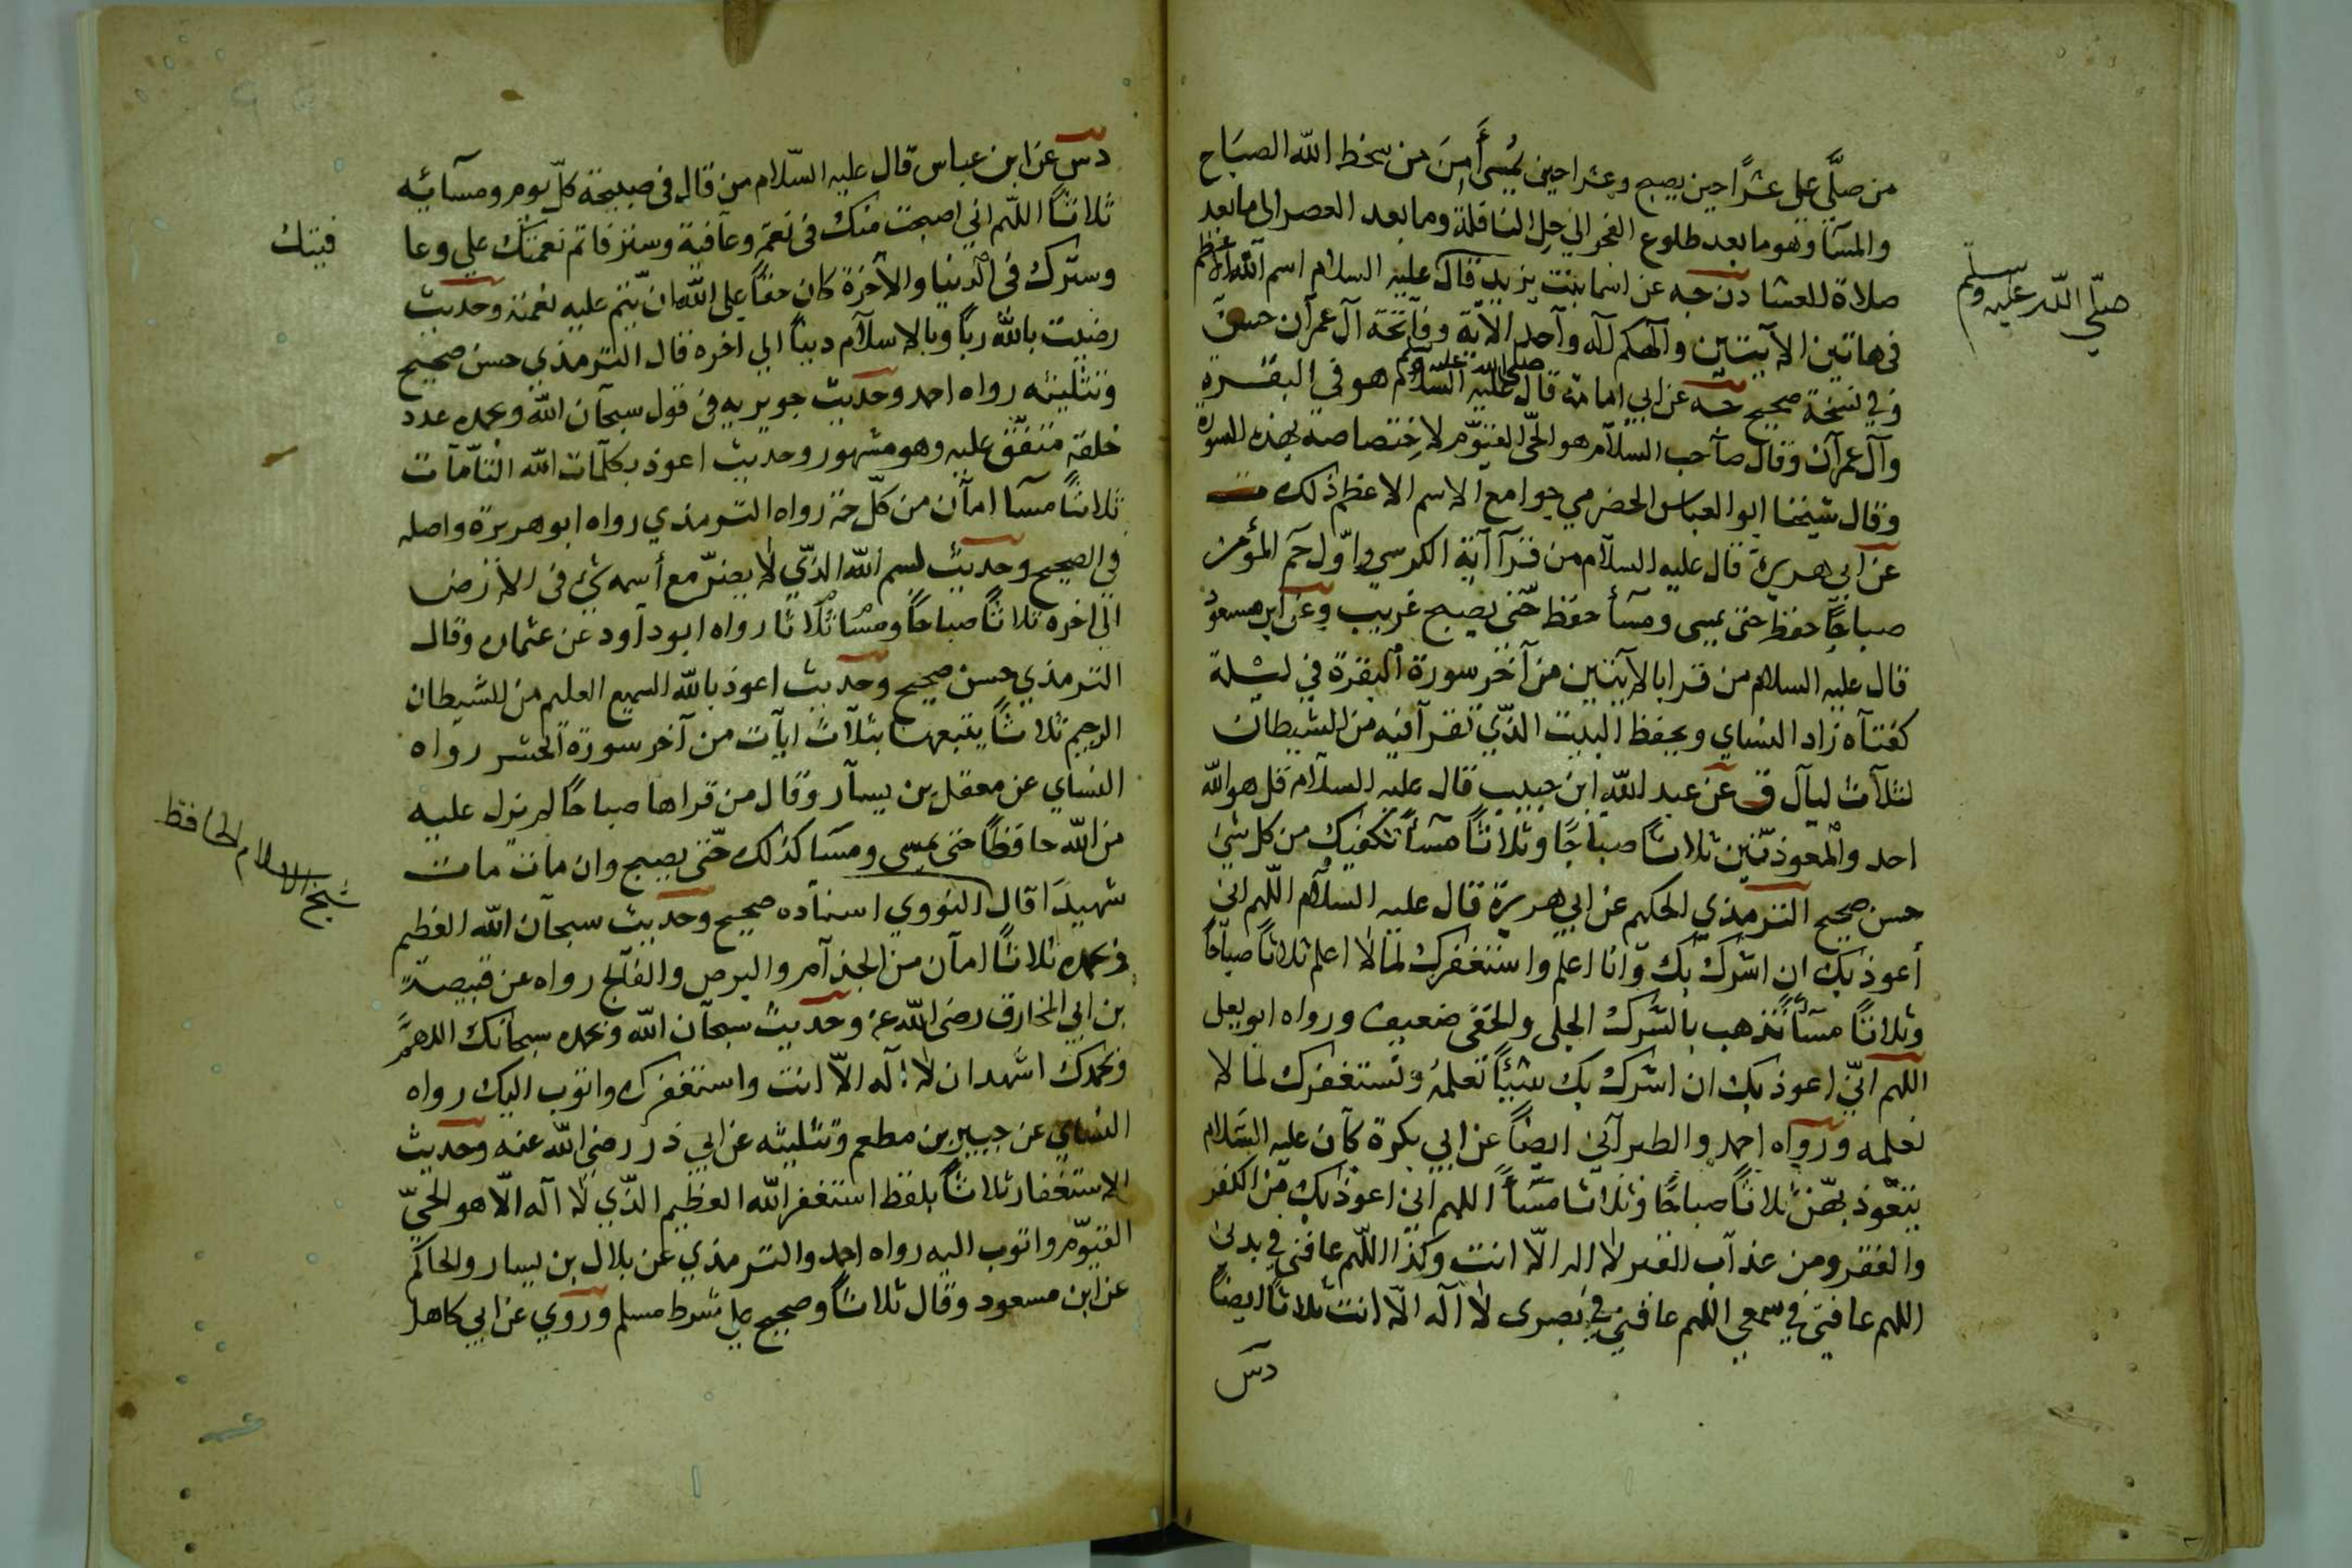 من صلَّي علي عشرًا حين يصبح وعشرا حين يمُسي أَمِنَ من سخط الله الصبَاح
والمسَآ وهو ما بعد طلوع الفجر الي حِل النافلة وما بعد العصر الي ما بعد
صلاة العشا دت جه عن اسما بنت يزيد قال عليه السلام اسم الله الاعظم
صلّي الله عليه وسلّم
في هاتين الآيتين والٰهكم اله واحد الآية وفاتحة ال عمرآن حسن
وفي نسخة صحيح جه عن ابي امامة قال عليه السّلام صلي الله عليه وسلم هو في البقرة
وآل عمرآن وقال صآحب السلاَم هو الحّي القيّوم لاختصاصه بهذه السورة
وقال شيخنا ابو العباس الحضرمي جوامع الاسم الاعظم ذلك ت
عن ابي هريرة قال عليه السلام من قرآ آية الكرسي واوّل حَم المؤمن
صباحًا حفظ حتى يمسى ومسآ حفظ حّتى يصبح غريب وعن ابن مسعود
قال عليه السلام من قرا بالآيتين من آخر سورة البقرة في ليلة
كفتاه زاد النساي ويحفظ البيت الذّي تقرآ فيه من الشيطان
لثلاث ليآل ق عن عبد اللّه ابن حبيب قال عليه السلام قل هو اللّه
احد والمعوذتين ثلاثاً صباحًا وثلاثاً مسآً تكفيك من كل شئ
حسن صحيح الترمذي الحكيم عن ابي هريرة قال عليه السلام اللّهم اني
أعوذ بك ان اشرك بك وانا اعلم واستغفرك لما لا اعلم ثلاثاً صباحًا
وثلاثاً مسآً تذهب بالشرك الجلي والخفى ضعيف ورواه ابو يعلى
اللهم انّي اعوذ بك ان اشرك بك شيئاً تعلمهُ ونستغفرك لما لا
نعلمه ورواه احمد والطبرآني ايضاً عن ابي بكرة كآن عليه السّلام
يتعّوذ بهّن ثلاثاً صباحًا وثلاثا مسَآً اللهم اني اعوذ بك من الكفر
والفقر ومن عذآب القبر لا اله الّا انت وكذا اللّهم عافني في بدني
اللهم عافني في سمعي اللهم عافني في بصرى لا آله الّا انت ثلاثا ايضاً
دس
دس عن ابن عباس قال عليه السّلام من قال في صبيحة كلّ يوم ومسآئه
ثلاثاً اللّهم اني اصبحت منك في نعمة وعآفية وستر فاتم نعمتك علي وعا
فيتك
وسترك في الدنيا والآخرة كان حقاً علي اللّه ان يتم عليه نعمته وحديث
رضيت باللّه رباً وبالاسلام ديناً الي اخره قال الترمذي حسن صحيح
وتثليثه رواه احمد وحديث جويريه في قول سبحآن الله وبحمده عدد
خلقه متفّق عليه وهو مشهور وحديث اعوذ بكلمآت الله التآمآت
ثلاثاً مسآ امآن من كلّ حمة رواه الترمذي رواه ابو هريرة واصله
في الصحيح وحديث بسم اللّه الذّي لا يضرّ مع أسمه شئ في الارض
الي اخره ثلاثاً صباحاً ومسًا ثلاثا رواه ابو دآود عن عثمان وقال
الترمذي حسن صحيح وحديث اعوذ باللّه السميع العليم من الشيطان
الرجيم ثلاثاً يتبعها بثلآث ايآت من آخر سورة الحشر رواه
النساي عن معقل بن يسآر وقال من قراها صباحًا لم يزل عليه
من اللّه حافظاً حتى يمسي ومسَا كذلك حتّى يصبح وان مات مات
شهيدَا قال النووي اسنآده صحيح وحديث سبحآن الله العظيم
شيخ الاسلام الحافظ
وبحمده ثلاثاً امآن من الجذآم والبرص والفآلج رواه عن قبيصة
بن ابي المخارق رضي اللّه عنه وحديث سبحآن اللّه وبحمده سبحانك اللهمَّ
وبحمدك اشهد ان لا اله الّا انت واستغفرك واتوب اليك رواه
النساي عن جبير بن مطعم وتثليثه عن ابي ذر رضي اللّه عنه وحديث
الاستغفار ثلاثاً بلفظ استغفر الله العظيم الذّي لا اله الّا هو الحّي
القيوّم واتوب اليه رواه احمد والترمذي عن بلال بن يسار والحاكم
عن ابن مسعود وقال ثلاثاً وصحيح علي شرط مسلم وروي عن ابي كاهل